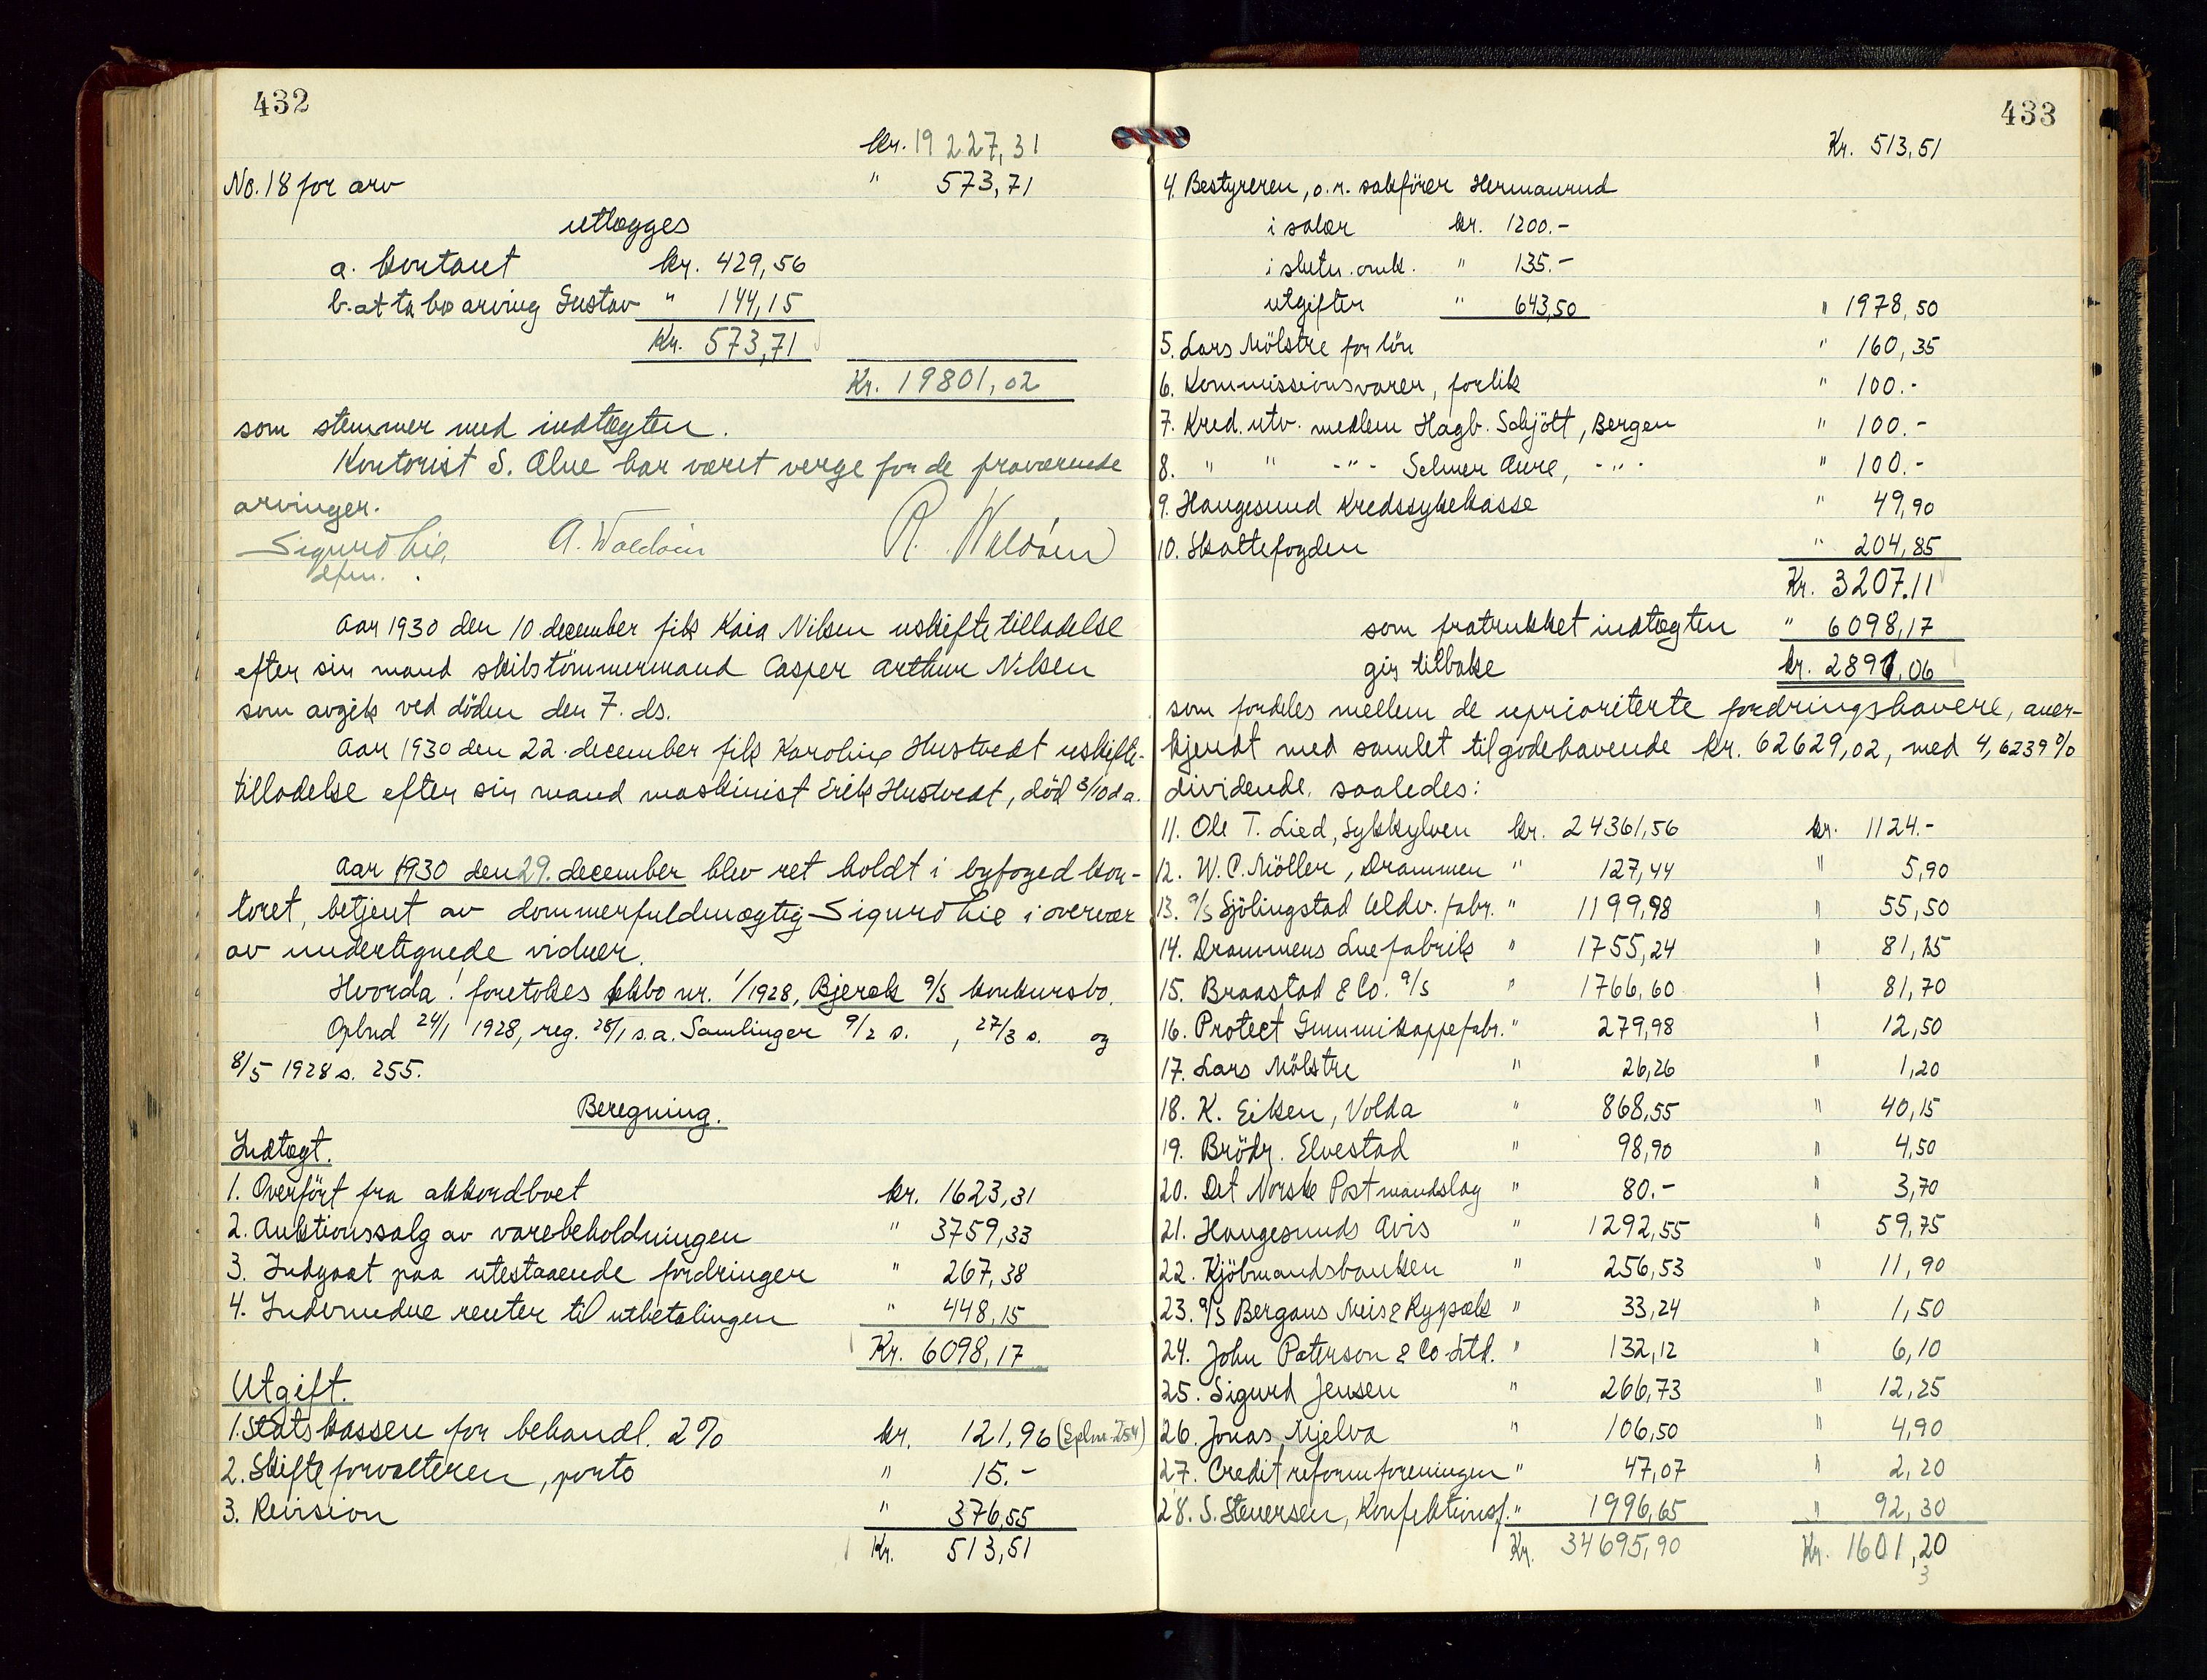 432
kr. 19 227,31
No. 18 for arv " 573,71
utlægges
a. kontant kr. 429,56
b. at ta bo arving Gustav " 144,15
Kr. 573,71
Kr. 19801,02
som stemmer med indtægten.
Kontorist S. Alne har været verge for de fraværende
arvinger.
Sigurd Lie, A. Waldøen R. Waldøen
dfm.
Aar 1930 den 10 december fik Kaia Nilsen uskiftetilladelse
efter sin mand skibstömmermand Casper Arthur Nilsen
som avgik ved döden den 7. ds.
Aar 1930 den 22. december fik Karoline Hustvedt uskifte-
tilladelse efter sin mand maskinist Erik Hustvedt, död 3/10 d.a.
Aar 1930 den 29. december blev ret holdt i byfogedkon-
toret, betjent av dommerfuldmægtig Sigurd Lie i overvær
av undertegnede vidner.
Hvorda! foretokes kkbo nr. 1/1928, Bjerck A/S konkursbo.
Opbud 24/1 1928, reg. 28/1 s.a. Samlinger 9/2 s. , 27/3 s. og
8/5 1928 s. 255.
Beregning.
Indtægt.
1. Overfört fra akkordboet kr. 1623,31
2. Auktionssalg av varebeholdningen " 3759,33
3. Indgaat paa utestaaende fordringer " 267,38
4. Indvundne renter til utbetalingen " 448,15
Kr. 6098,17
Utgift.
1. Statskassen for behandl. 2% kr. 121,96 (Splm. 254)
2. Skifteforvalteren, porto " 15.-
3. Revision " 376,55
Kr. 513,51
433
Kr. 513,51
4. Bestyreren, o.r. sakförer Hermanrud
i salær kr. 1200.-
i slutn. omk. " 135.-
utgifter " 643,50 " 1978,50
5. Lars Mölstre for lön " 160,35
6. Kommissionsvarer, forlik " 100.-
7. Kred. utv. medlem Hagb. Schjött, Bergen " 100.-
8. " " -"- Selmer Aure, -"- " 100.-
9. Haugesund Kredssykekasse " 49,90
10. Skattefogden " 204,85
Kr. 3207.11
som fratrukket indtægten " 6098,17
gir tilbake kr. 2891,06
som fordeles mellem de uprioriterte fordringshavere, aner-
kjendt med samlet tilgodehavende kr. 62629,02, med 4,6239%
dividende saaledes:
11. Ole T. Lied, Sykkylven kr. 24361,56 kr. 1124.-
12. W. C. Möller, Drammen " 127,44 " 5,90
13. A/S Sjölingstad Uldv. fabr. " 1199,98 " 55,50
14. Drammens Luefabrik " 1755,24 " 81,15
15. Braastad & Co. A/S " 1766,60 " 81,70
16. Protect Gummikappefabr. " 279,98 " 12,50
17. Lars Mölstre " 26,26 " 1,20
18. K. Eiken, Volda " 868,55 " 40,15
19. Brödr. Elvestad " 98,90 " 4,50
20. Det Norske Postmandslag " 80.- " 3,70
21. Haugesunds Avis " 1292,55 " 59,75
22. Kjöbmandsbanken " 256,53 " 11,90
23. A/S Bergans Meis & Rygsæk " 33,24 " 1,50
24. John Paterson & Co Ltd. " 132,12 " 6,10
25. Sigurd Jensen " 266,73 " 12,25
26. Jonas Mjelva " 106,50 " 4,90
27. Creditreformforeningen " 47,07 " 2,20
28. S. Stenersen, Konfektionsf. " 1996,65 " 92,30
Kr. 34695,90 Kr. 1601,20
3